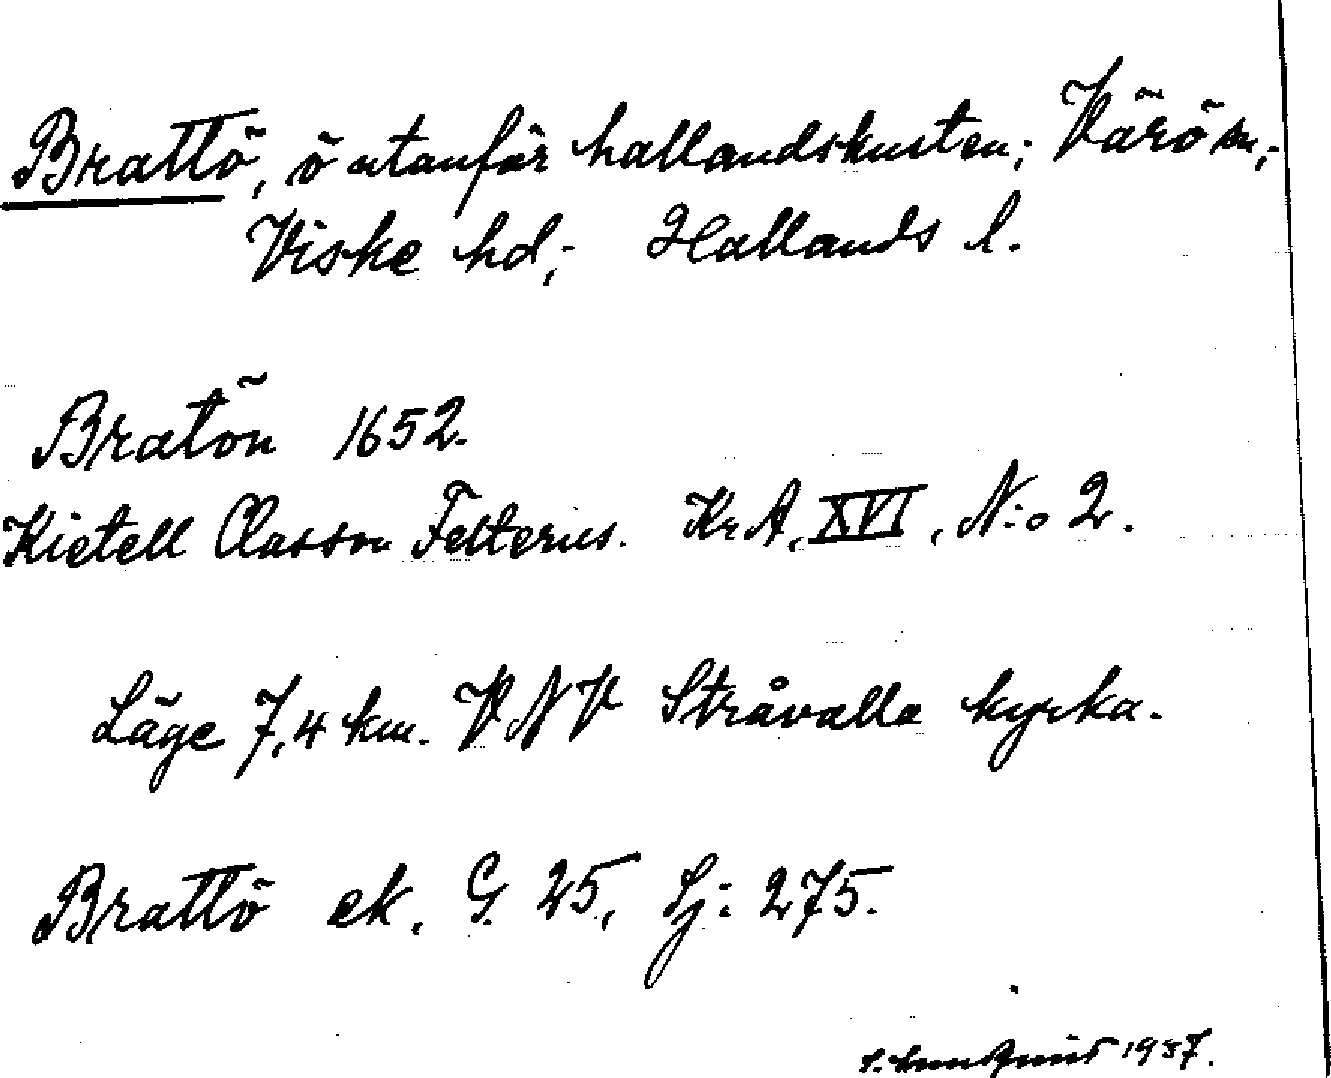 Brattö, ö utanför hallandskusten; Värö sn,-
Viske hd,- Hallands l.
Bratön 1652.
Kietell Classon Felterus. Kr A, XVI, N:o 2.
Läge 7,4 km. VNV Stråvalla kyrka.
Brattö ek. G. 25, Lj: 275.
1937.